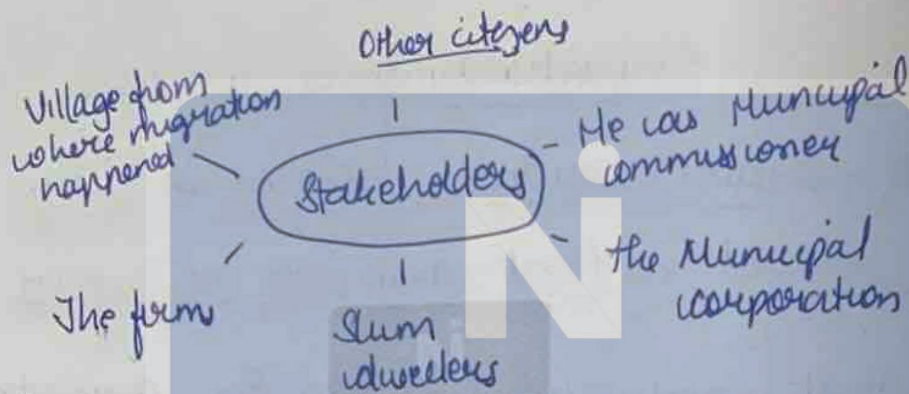 Other citizens
Village from
where migration
happened
Stakeholders
Me as Municipal
commissioner
the Municipal
corporation
The firms
Slum
dwellers